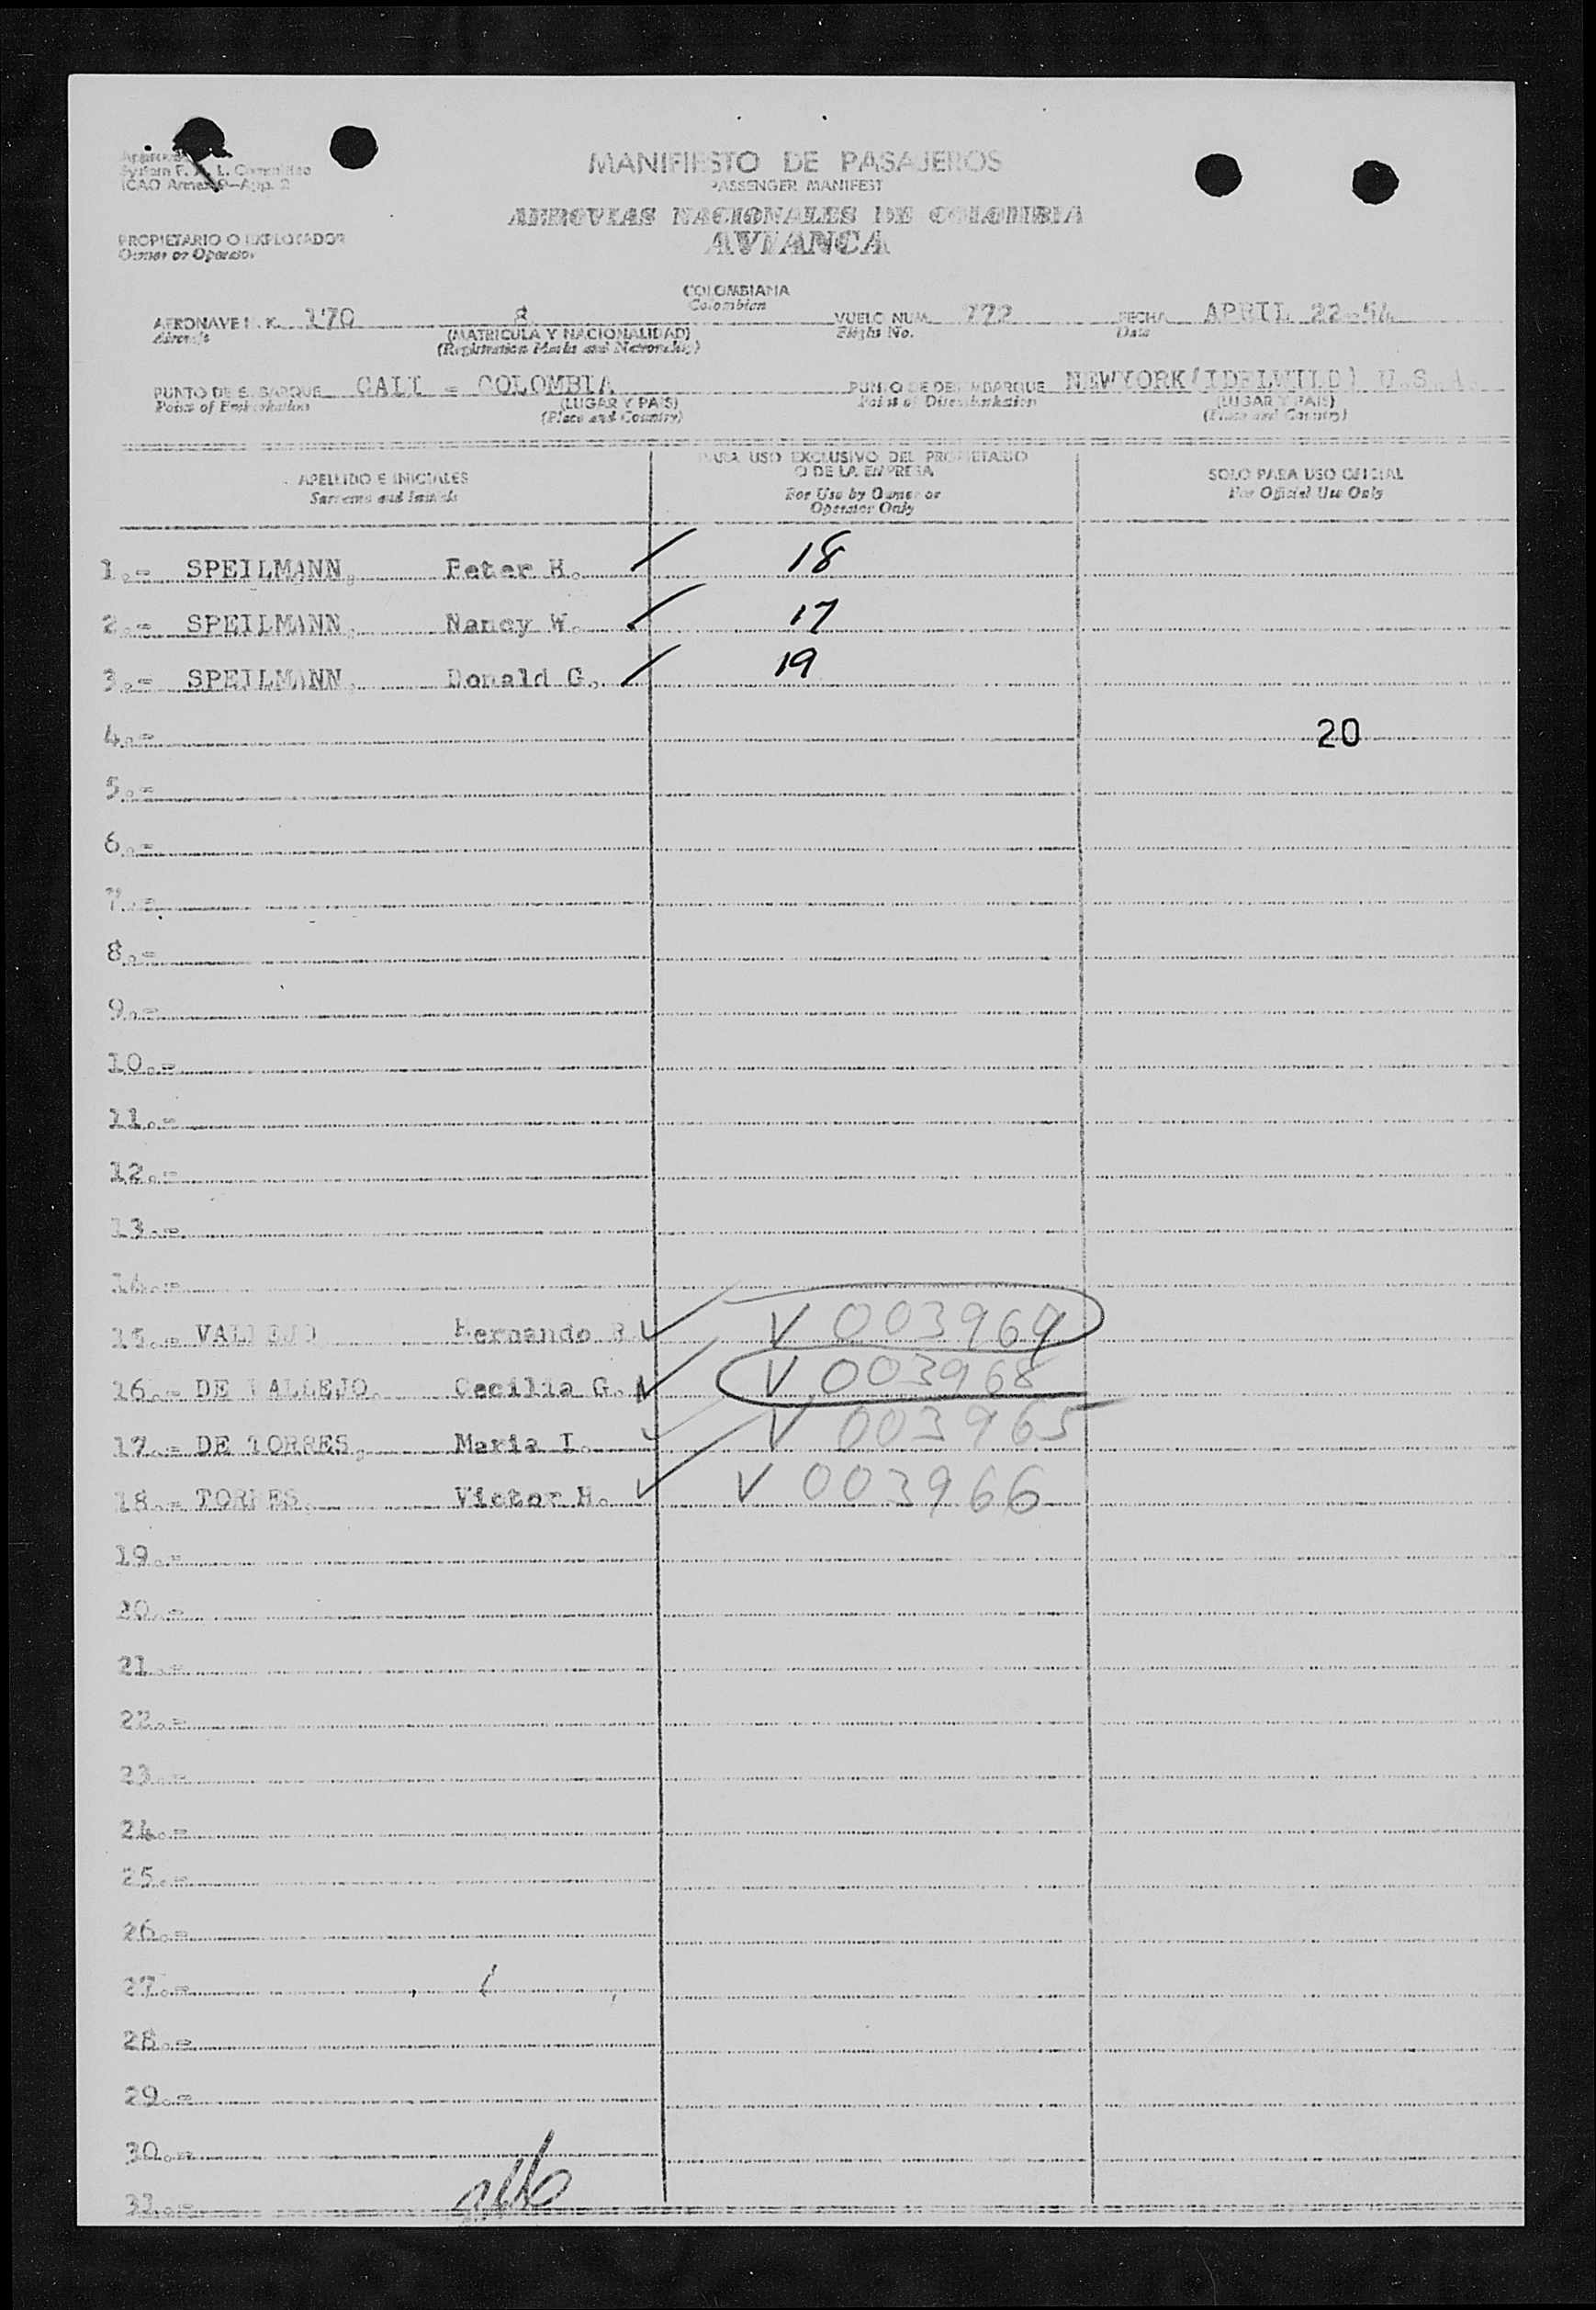 MANIFIESTO DE PASAJEROS
PASSENGER MANIFEST
System F. A. L. Committee
ICAO Annex 9-App. 2
AEROVIAS NACIONALES DE COLOMBIA
AVIANCA
PROPIETARIO O EXPLOTADOR
Owner or Operator
COLOMBIANA
Colombian
AERONAVE H. K. 170 VUELO NUM. 772 FECHA APRIL 22-54
Aircraft (MATRICULA Y NACIONALIDAD) Flight No. Date
(Registration Marks and Nationality)
PUNTO DE EMBARQUE CALI = COLOMBIA PUNTO DE DESEMBARQUE NEWYORK(IDELWILD) U.S.A.
Point of Embarkation (LUGAR Y PAIS) Point of Disembarkation (LUGAR Y PAIS)
(Place and Country) (Place and Country)
PARA USO EXCLUSIVO DEL PROPIETARIO
APELLIDO E INICIALES O DE LA EMPRESA SOLO PARA USO OFICIAL
Surname and Initials For Use by Owner or For Official Use Only
Operator Only
1.= SPEILMANN, Peter H. 18
2.= SPEILMANN, Nancy W. 17
3.= SPEILMANN, Donald G. 19
4.= 20
5.=
6.=
7.=
8.=
9.=
10.=
11.=
12.=
13.=
14.=
15.= VALLEJO Hernando V 003969
16.= DE VALLEJO, Cecilia G. V 003968
17.= DE TORRES, Maria I. V 003965
18.= TORRES, Victor H. V 003966
19.=
20.=
21.=
22.=
23.=
24.=
25.=
26.=
27.=
28.=
29.=
30.=
31.=